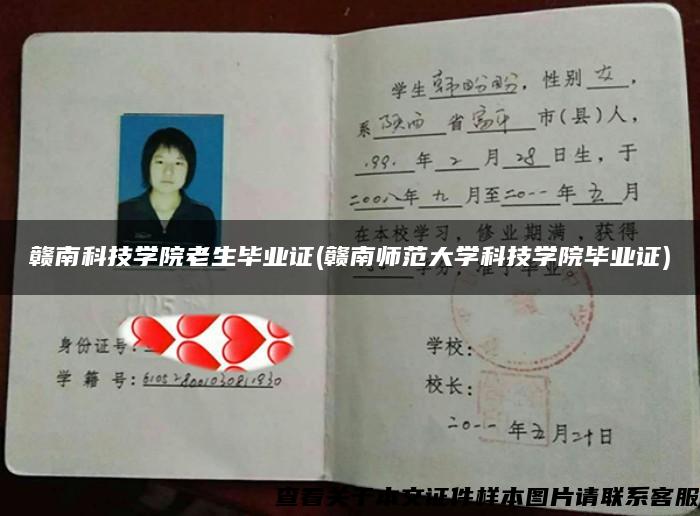 学生韩盼盼，性别女，
系陕西省富平市(县)人，
.99.年2月28日生，于
二00八年九月至二0一一年五月
在本校学习，修业期满，获得
赣南科技学院老生毕业证(赣南师范大学科技学院毕业证)
学分，准予毕业。
身份证号：
学籍号：610528001030811930
学校：
校长：
二0一一年五月二十日
查看关于本文证件样本图片请联系客服